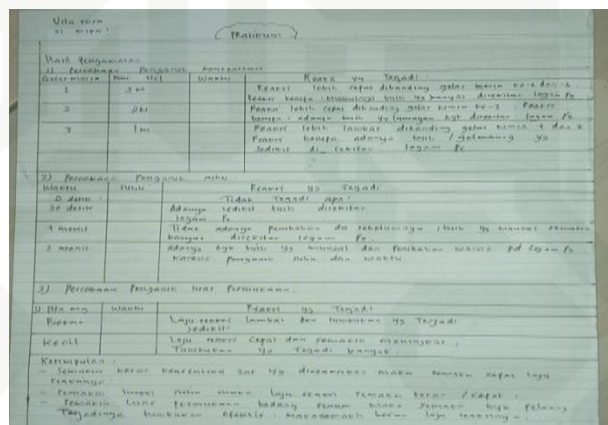 Vita rora
XI MIPA 1
Praktikum
Hasil Pengamatan
1) Percobaan Pengaruh Konsentrasi
Gelas kimia HCl Waktu Reaksi yg Terjadi
1 3M Reaksi lebih cepat dibanding gelas kimia ke-2 dan 3.
Reaksi berupa munculnya buih yg banyak disekitar logam Fe
2 2M Reaksi lebih cepat dibanding gelas kimia ke-3. Reaksi
berupa adanya buih yg lumayan byk disekitar logam Fe.
3 1M Reaksi lebih lambat dibanding gelas kimia 1 dan 2
Reaksi berupa adanya buih / gelembung yg
sedikit di sekitar logam Fe
2) Percobaan Pengaruh suhu
Waktu suhu Reaksi yg Terjadi
0 detik Tidak Terjadi apa²
30 detik Adanya sedikit buih disekitar
logam Fe
1 menit Tidak adanya perubahan dr sebelumnya, buih yg muncul semakin
banyak disekitar logam Fe.
2 menit adanya byk buih yg muncul dan perubahan warna pd logam Fe
karena pengaruh suhu dan waktu.
3) Percobaan Pengaruh luas Permukaan.
Waktu Reaksi yg Terjadi
Besar Laju reaksi lambat dan tumbukan yg Terjadi
sedikit
Kecil Laju reaksi cepat dan semakin meningkat.
Tumbukan yg Terjadi banyak.
Kesimpulan :
- Semakin besar konsentrasi zat yg direaksikan maka semakin cepat laju
reaksinya.
- Semakin tinggi suhu maka laju reaksi semakin besar / cepat.
- Semakin luas permukaan bidang sentuh maka semakin byk peluang
Terjadinya tumbukan efektif, laju reaksinya.